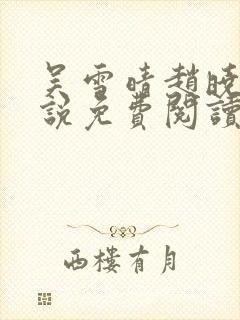 吴雪晴趙晓
說免費閱讀
西樓有月